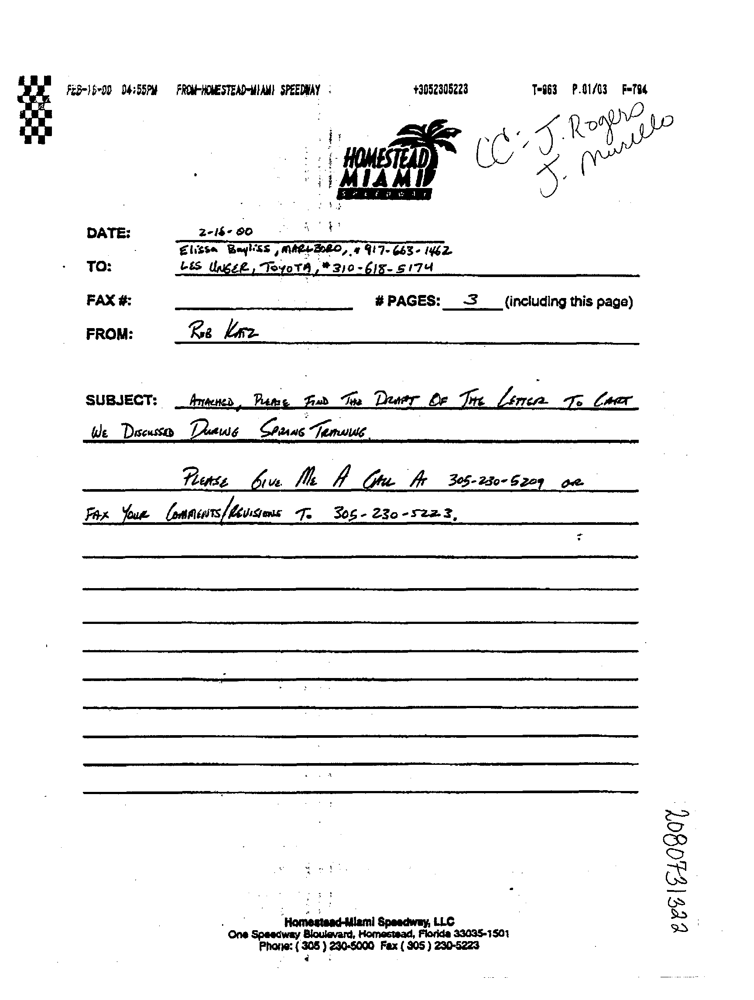 FEB-16-00 04:55PM FROM-HOMESTEAD-MIAMI SPEEDWAY +3052305223 T-963 P.01/03 F-794
CC: J. Rogers
J. Murillo
HOMESTEAD
MIAMI
SPEEDWAY
DATE: 2-16-00
Elissa Bayliss, MARLBORO, # 917-663-1462
TO: LES UNGER, TOYOTA, # 310-618-5174
FAX #: # PAGES: 3 (including this page)
FROM: ROB KATZ
SUBJECT: ATTACHED, PLEASE FIND THE DRAFT OF THE LETTER TO CART
WE DISCUSSED DURING SPRING TRAINING.
PLEASE GIVE ME A CALL AT 305-230-5209 OR
FAX YOUR COMMENTS/REVISIONS TO 305-230-5223.
2080731322
Homestead-Miami Speedway, LLC
One Speedway Bloulevard, Homestead, Florida 33035-1501
Phone: ( 305 ) 230-5000 Fax ( 305 ) 230-5223